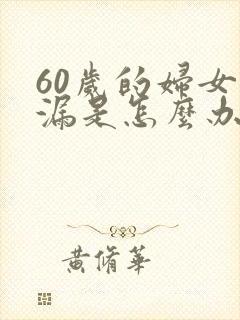 60歲的婦女
漏是怎麼办
黄脩華